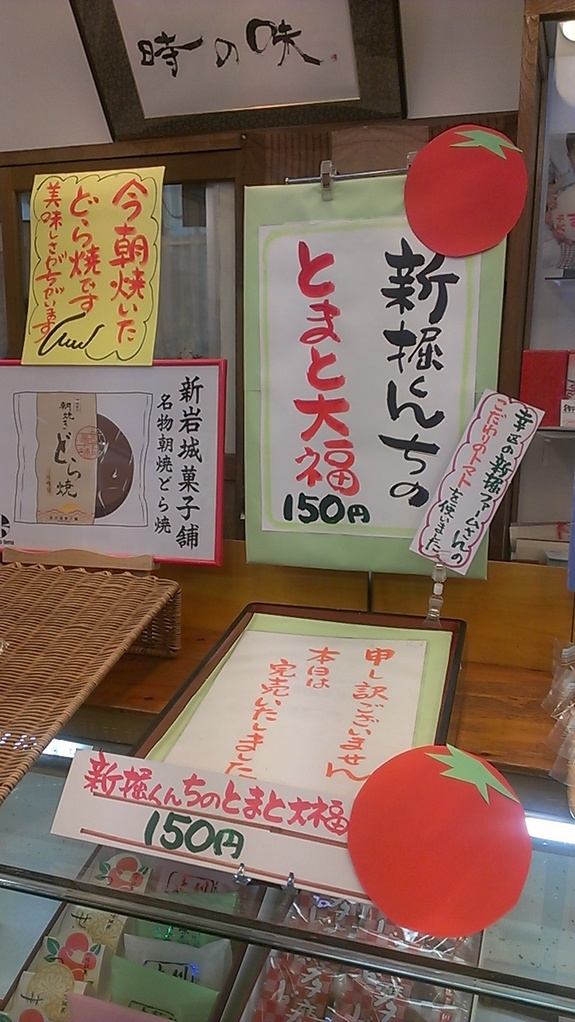 時の味
今朝焼いた
どら焼です
美味しさがちがいます
新堀くんちの
とまと大福
150円
幸区の新堀ファームさんの
こだわりのトマトを使いました
新岩城菓子舗
名物朝焼どら焼
朝焼き
どら焼
申し訳ございません
本日は
完売いたしました
新堀くんちのとまと大福
150円